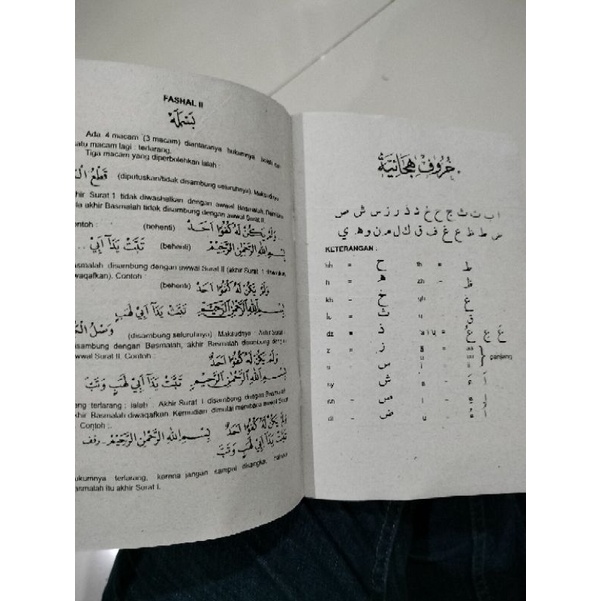 FASHAL II
بَسْمَلَة
Ada 4 macam (3 macam) diantaranya hukumnya boleh dan
satu macam lagi : terlarang.
Tiga macam yang diperbolehkan ialah :
(diputuskan/tidak disambung seluruhnya). Maksudnya
akhir Surat 1 tidak diwashalkan dengan awwal Basmalah. Demikian
akhir Basmalah tidak disambung dengan awwal Surat II.
Contoh : (henenti) وَلَمْ يَكُنْ لَهُ كُفُوًا أَحَدٌ
(behenti) بِسْمِ اللهِ الرَّحْمٰنِ الرَّحِيْمِ (behenti) تَبَّتْ يَدَآ أَبِيْ ...
Basmalah disambung dengan awwal Surat II (akhir Surat I
diwaqafkan). Contoh :
وَلَمْ يَكُنْ لَهُ كُفُوًا أَحَدٌ
بِسْمِ اللهِ الرَّحْمٰنِ الرَّحِيْمِ تَبَّتْ يَدَآ أَبِيْ لَهَبٍ
(disambung seluruhnya). Maksudnya : Akhir Surat I وَصْلُ
disambung dengan Basmalah, akhir Basmalah disambung dengan
awwal Surat II. Contoh :
وَلَمْ يَكُنْ لَهُ كُفُوًا أَحَدٌ
بِسْمِ اللهِ الرَّحْمٰنِ الرَّحِيْمِ تَبَّتْ يَدَآ أَبِيْ لَهَبٍ وَتَبَّ
yang terlarang : ialah : Akhir Surat I disambung dengan Basmalah
akhir Basmalah diwaqafkan. Kemudian dimulai membaca awwal Surat
Contoh : وَلَمْ يَكُنْ لَهُ كُفُوًا أَحَدٌ
بِسْمِ اللهِ الرَّحْمٰنِ الرَّحِيْمِ . وقف
تَبَّتْ يَدَآ أَبِيْ لَهَبٍ وَتَبَّ
hukumnya terlarang, karena jangan sampai disangka, bahwa
Basmalah itu akhir Surat I.
حُرُوْفُ هِجَائِيَّةُ
ا ب ت ث ج ح خ د ذ ر ز س ش ص
ض ط ظ ع غ ف ق ك ل م ن و ه ي
KETERANGAN :
hh = ح th = ط
h = ه zh = ظ
kh = خ gh = غ
ث ق
dz = ذ
z = ز
s = س
sy = ش
sh = ص
dl = ض
panjang